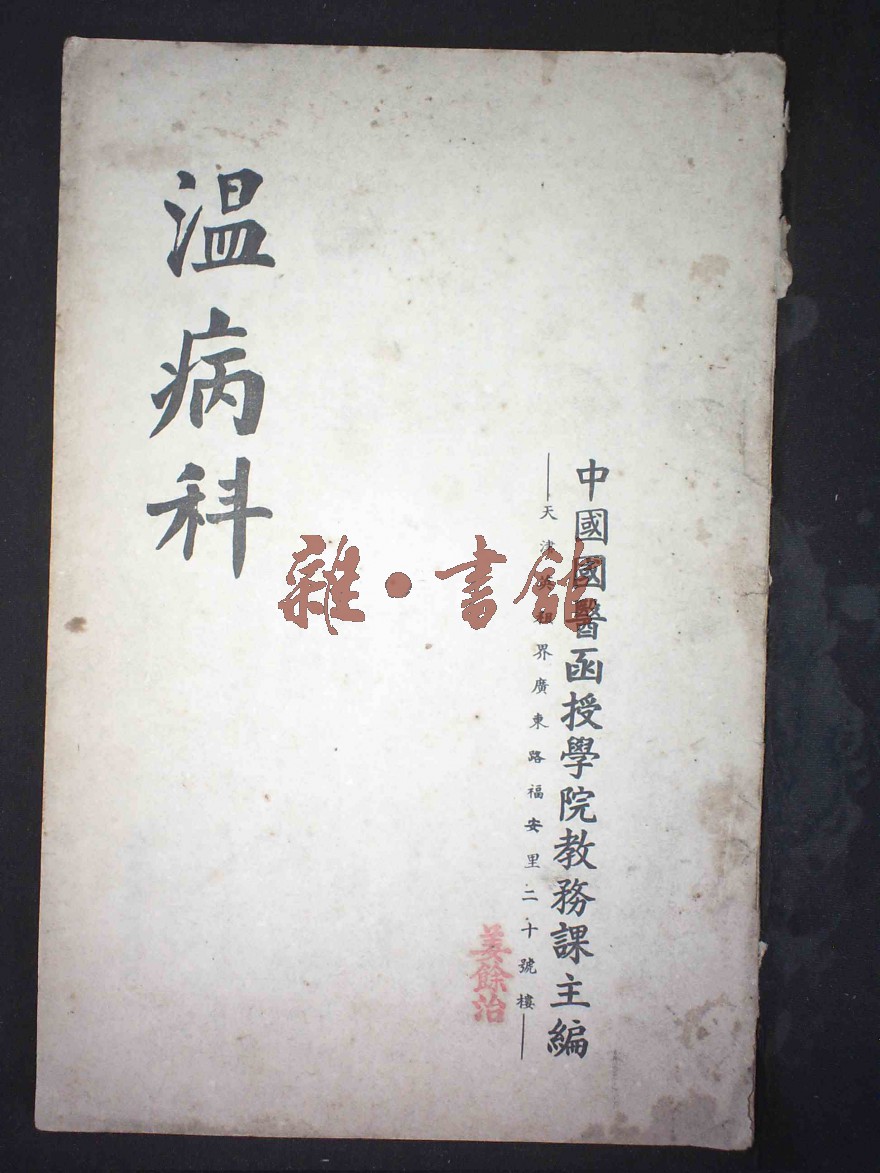 中國國醫函授學院教務課主編
天津英租界廣東路福安里二十號樓
姜餘治
温病科
雜·書館